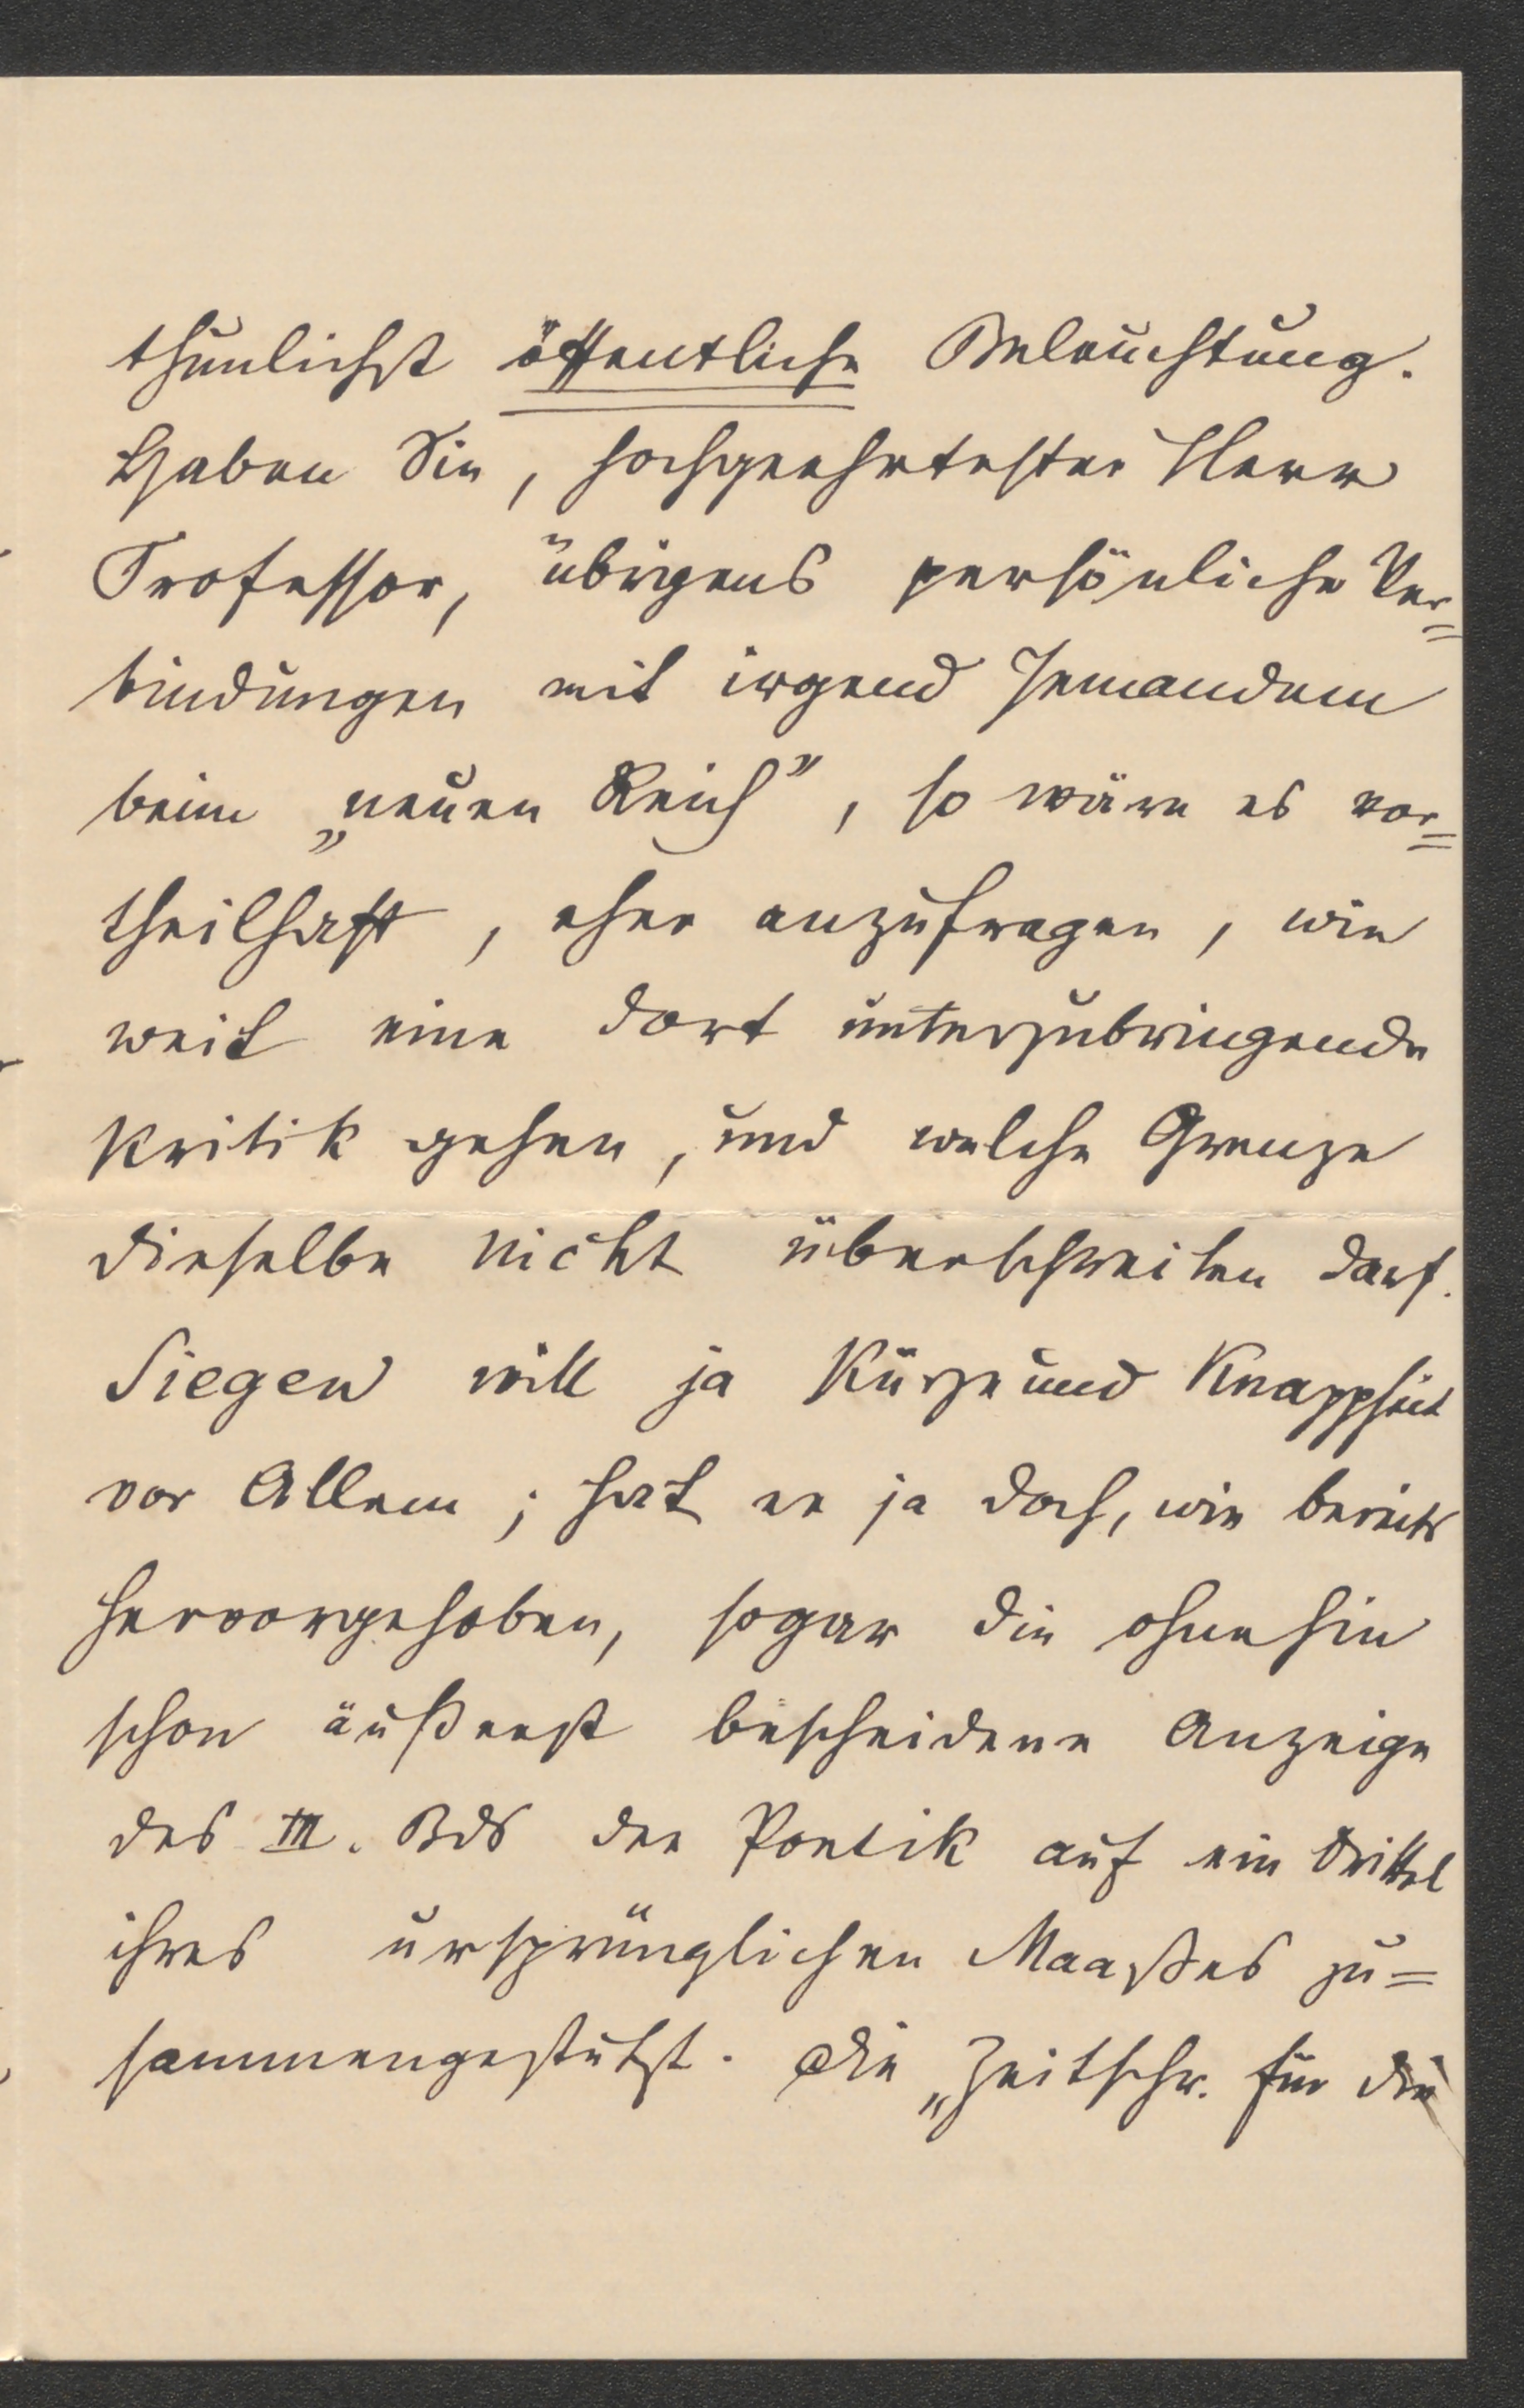 thunlichst öffentliche Beleuchtung.
Haben Sie, hochgeehrtester Herr
Professor, übrigens persönliche Ver=
bindungen mit irgend Jemandem
beim „neuen Reich", so wäre es vor=
theilhaft, eher anzufragen, wie
weit eine dort unterzubringende
Kritik gehen, und welche Grenze
dieselbe nicht überschreiten darf.
Siegen will ja Kürze und Knappheit
vor Allem; hat er ja doch, wie bereits
hervorgehoben, sogar die ohnehin
schon äußerst bescheidene Anzeige
des III. Bds der Poetik auf ein Drittel
ihres ursprünglichen Maaßes zu=
sammengestutzt. Die „Zeitschr. für die